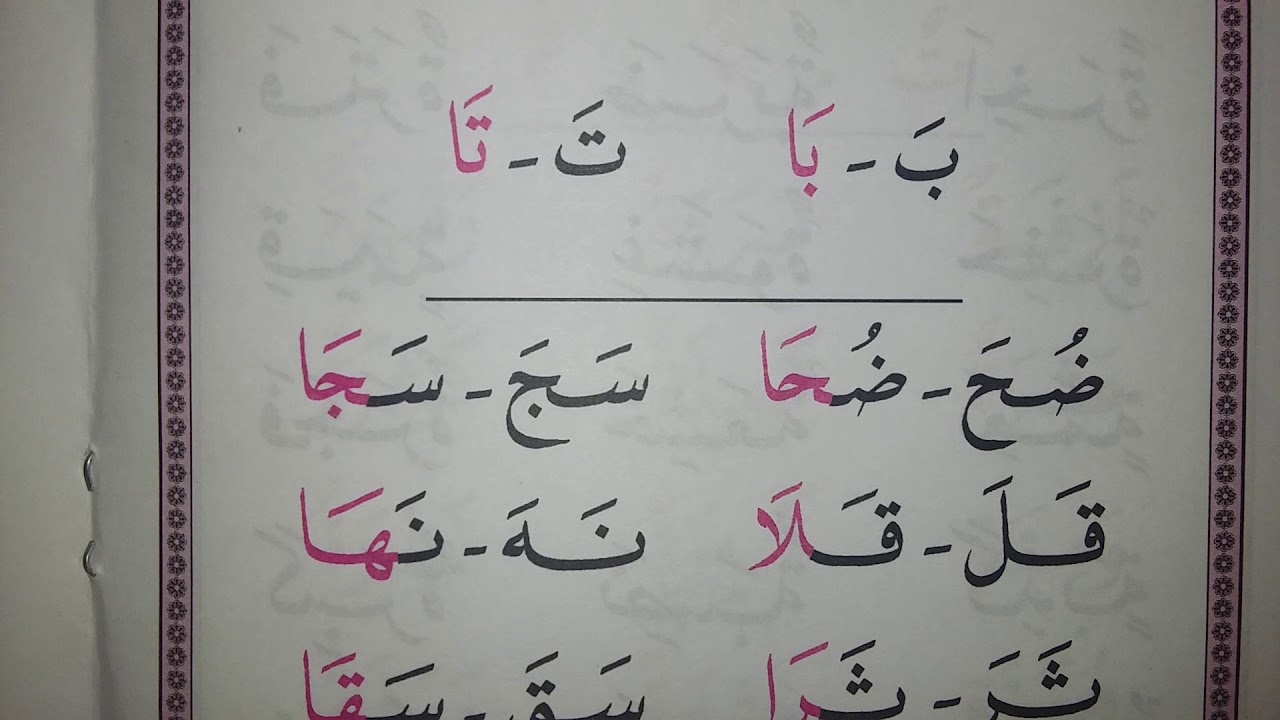 بَ - بَا تَ - تَا
ضُحَ - ضُحَا سَجَ - سَجَا
قَلَ - قَلَا نَهَ - نَهَا
ثَرَ - ثَرَا سَقَ - سَقَا